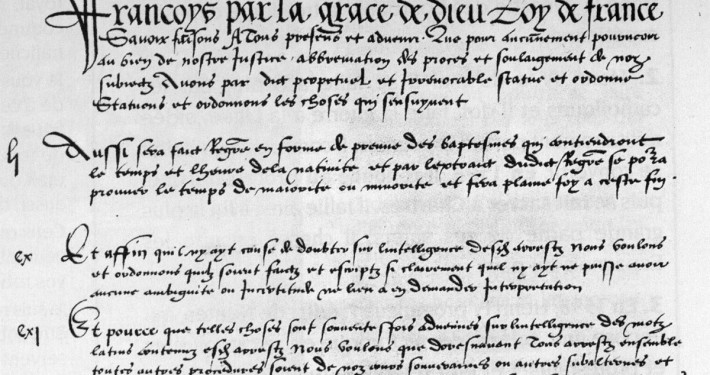 Francoys par la grace de dieu Roy de france
Savoir faisons A Tous presens et advenir Que pour aucunement pourveoir
au bien de nostre Justice abbreviation des proces et soulagement de noz
subiectz Avons par edict perpetuel et Irrevocable statue et ordonne
Statuons et ordonnons les choses qui sensuyvent
Aussi sera faict Regre en forme de preuve des baptesmes qui contiendront
le temps et lheure dela nativite et par lextraict dudict Regre se porra
prouver le temps de maiorite ou minorite et fera plaine foy a ceste fin
cx Et affin quil ny ayt cause de doubter sur lintelligence desdz arrestz Nous voulons
et ordonnons quilz soient faictz et escriptz si clairement quil ny ayt ne puisse avoir
aucune ambiguite ou Incertitude ne lieu a en demander Interpretation
cxj Et pource que telles choses sont souventesfois advenues sur lintelligence des motz
latins contenuz esdz arrestz Nous voulons que doresnavant Tous arrestz ensemble
toutes autres procedures soient de noz cours souveraines ou autres subalternes et